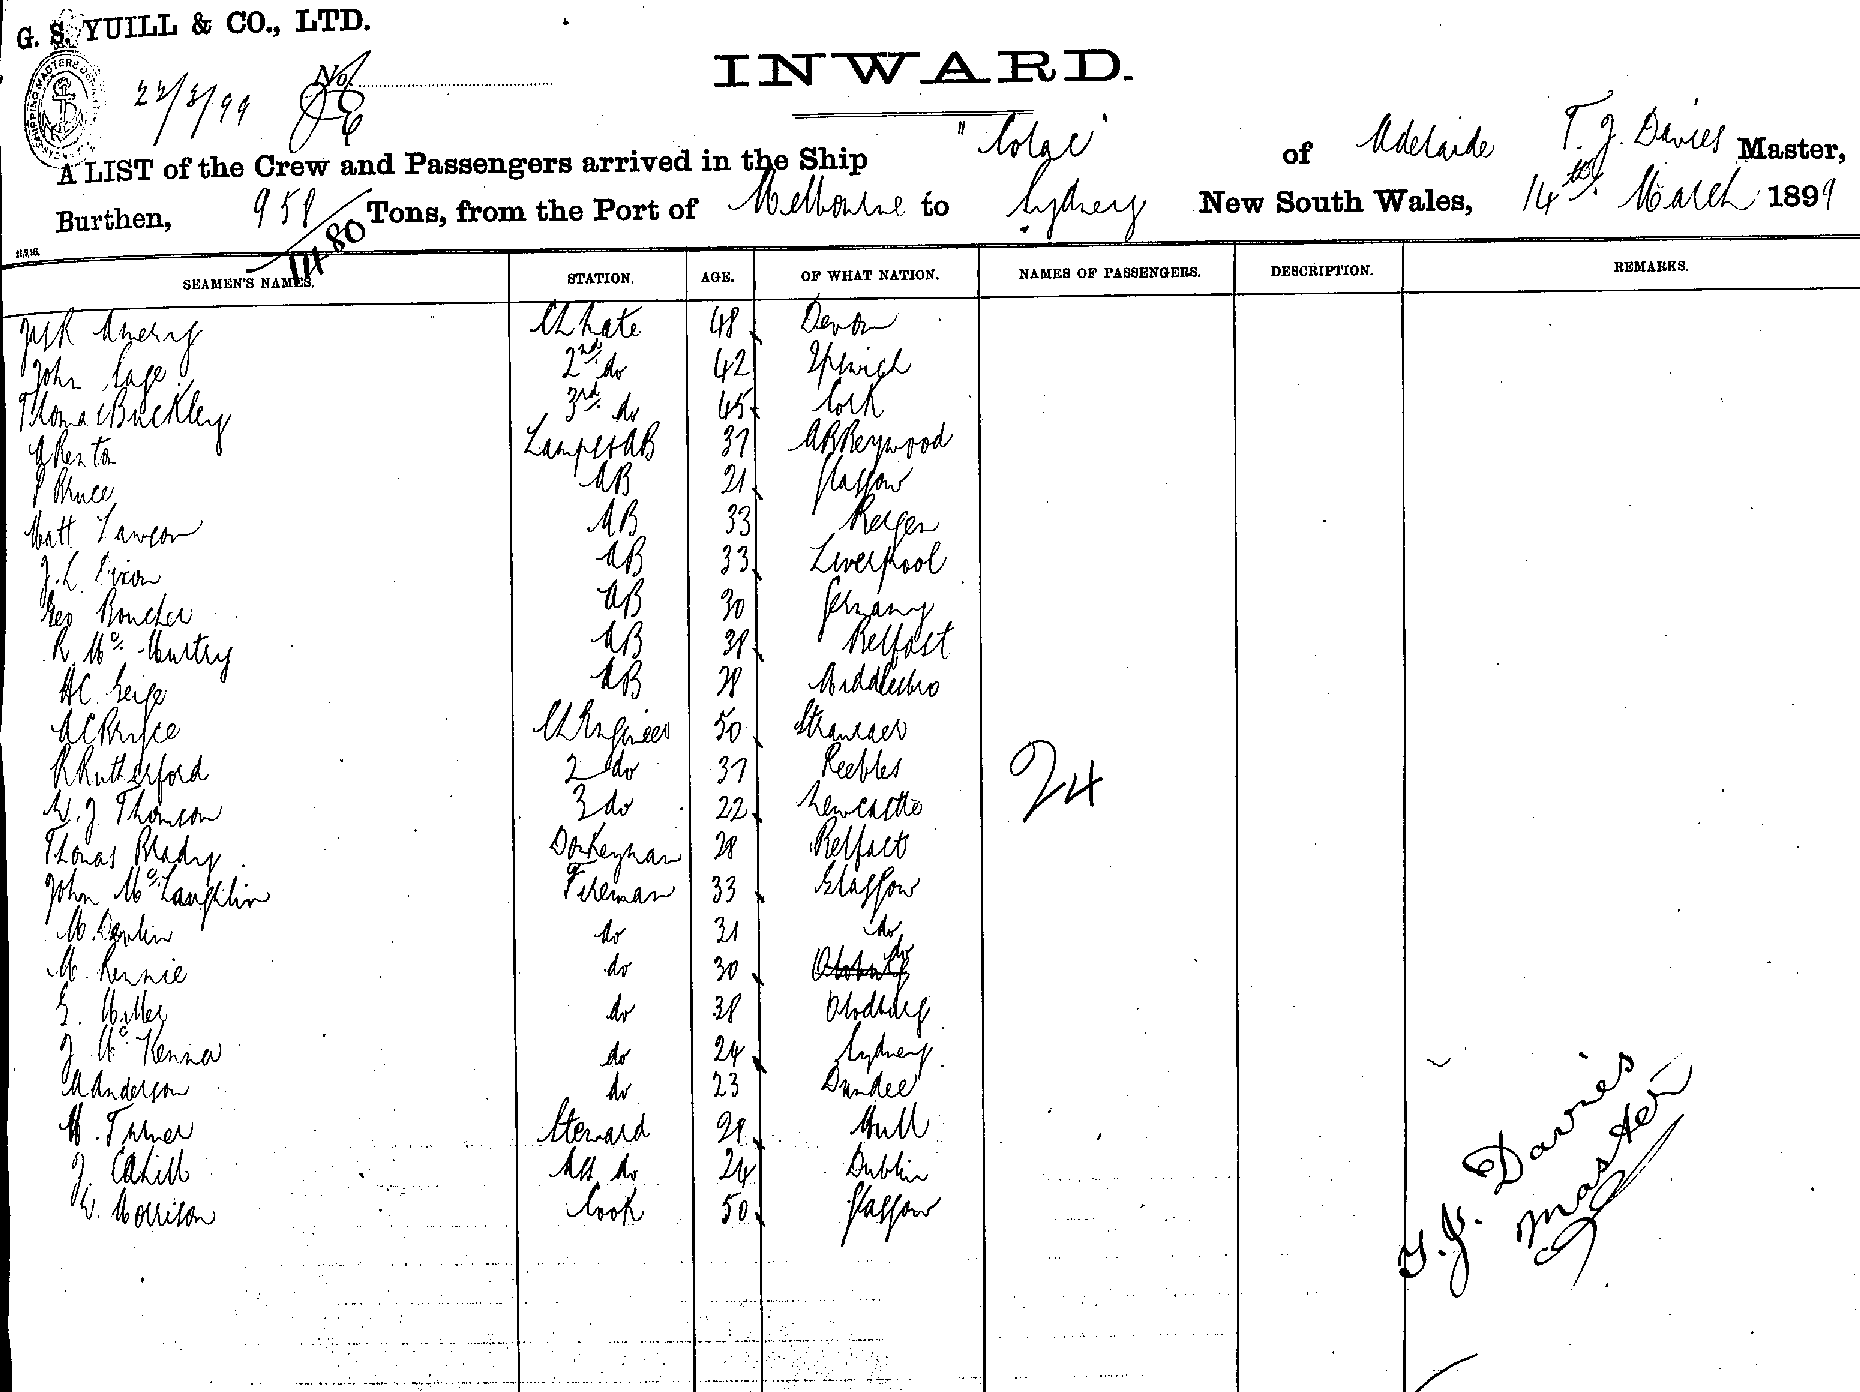 G. S. YUILL & CO., LTD.
22/3/99 No.
INWARD.
A LIST of the Crew and Passengers arrived in the Ship "Colac" of Adelaide T. J. Davies Master,
Burthen, 958/1480 Tons, from the Port of Melbourne to Sydney New South Wales, 14th March 1899
SEAMEN'S NAMES. STATION. AGE. OF WHAT NATION. NAMES OF PASSENGERS. DESCRIPTION. REMARKS.
Ch Mate 48 Devon
John Cage 2nd do 42 Ipswich
Thomas Buckley 3rd do 45 Cork
A Renton Lamps & AB 37 Abbeywood
Bruce AB 21 Glasgow
Matt Lawson AB 33 Bergen
J. L. Dixon AB 33 Liverpool
Geo Boucher AB 30 Germany
R McMurtry AB 38 Belfast
AB 28 Middlesbro
A C Bryce Ch Engineer 50 Stranraer
R Rutherford 2 do 37 Peebles
W. J. Thomson 3 do 22 Newcastle
Thomas Brady Donkeyman 28 Belfast
John McLaughlin Fireman 33 Glasgow
M. Devlin do 31 do
M. Rennie do 30 do
E. Miller do 38
J. McKenna do 24 Sydney
A Anderson do 23 Dundee
H. Turner Steward 29 Hull
J. Cahill Ast do 24 Dublin
W. Morrison Cook 50 Glasgow
24
T. J. Davies
Master